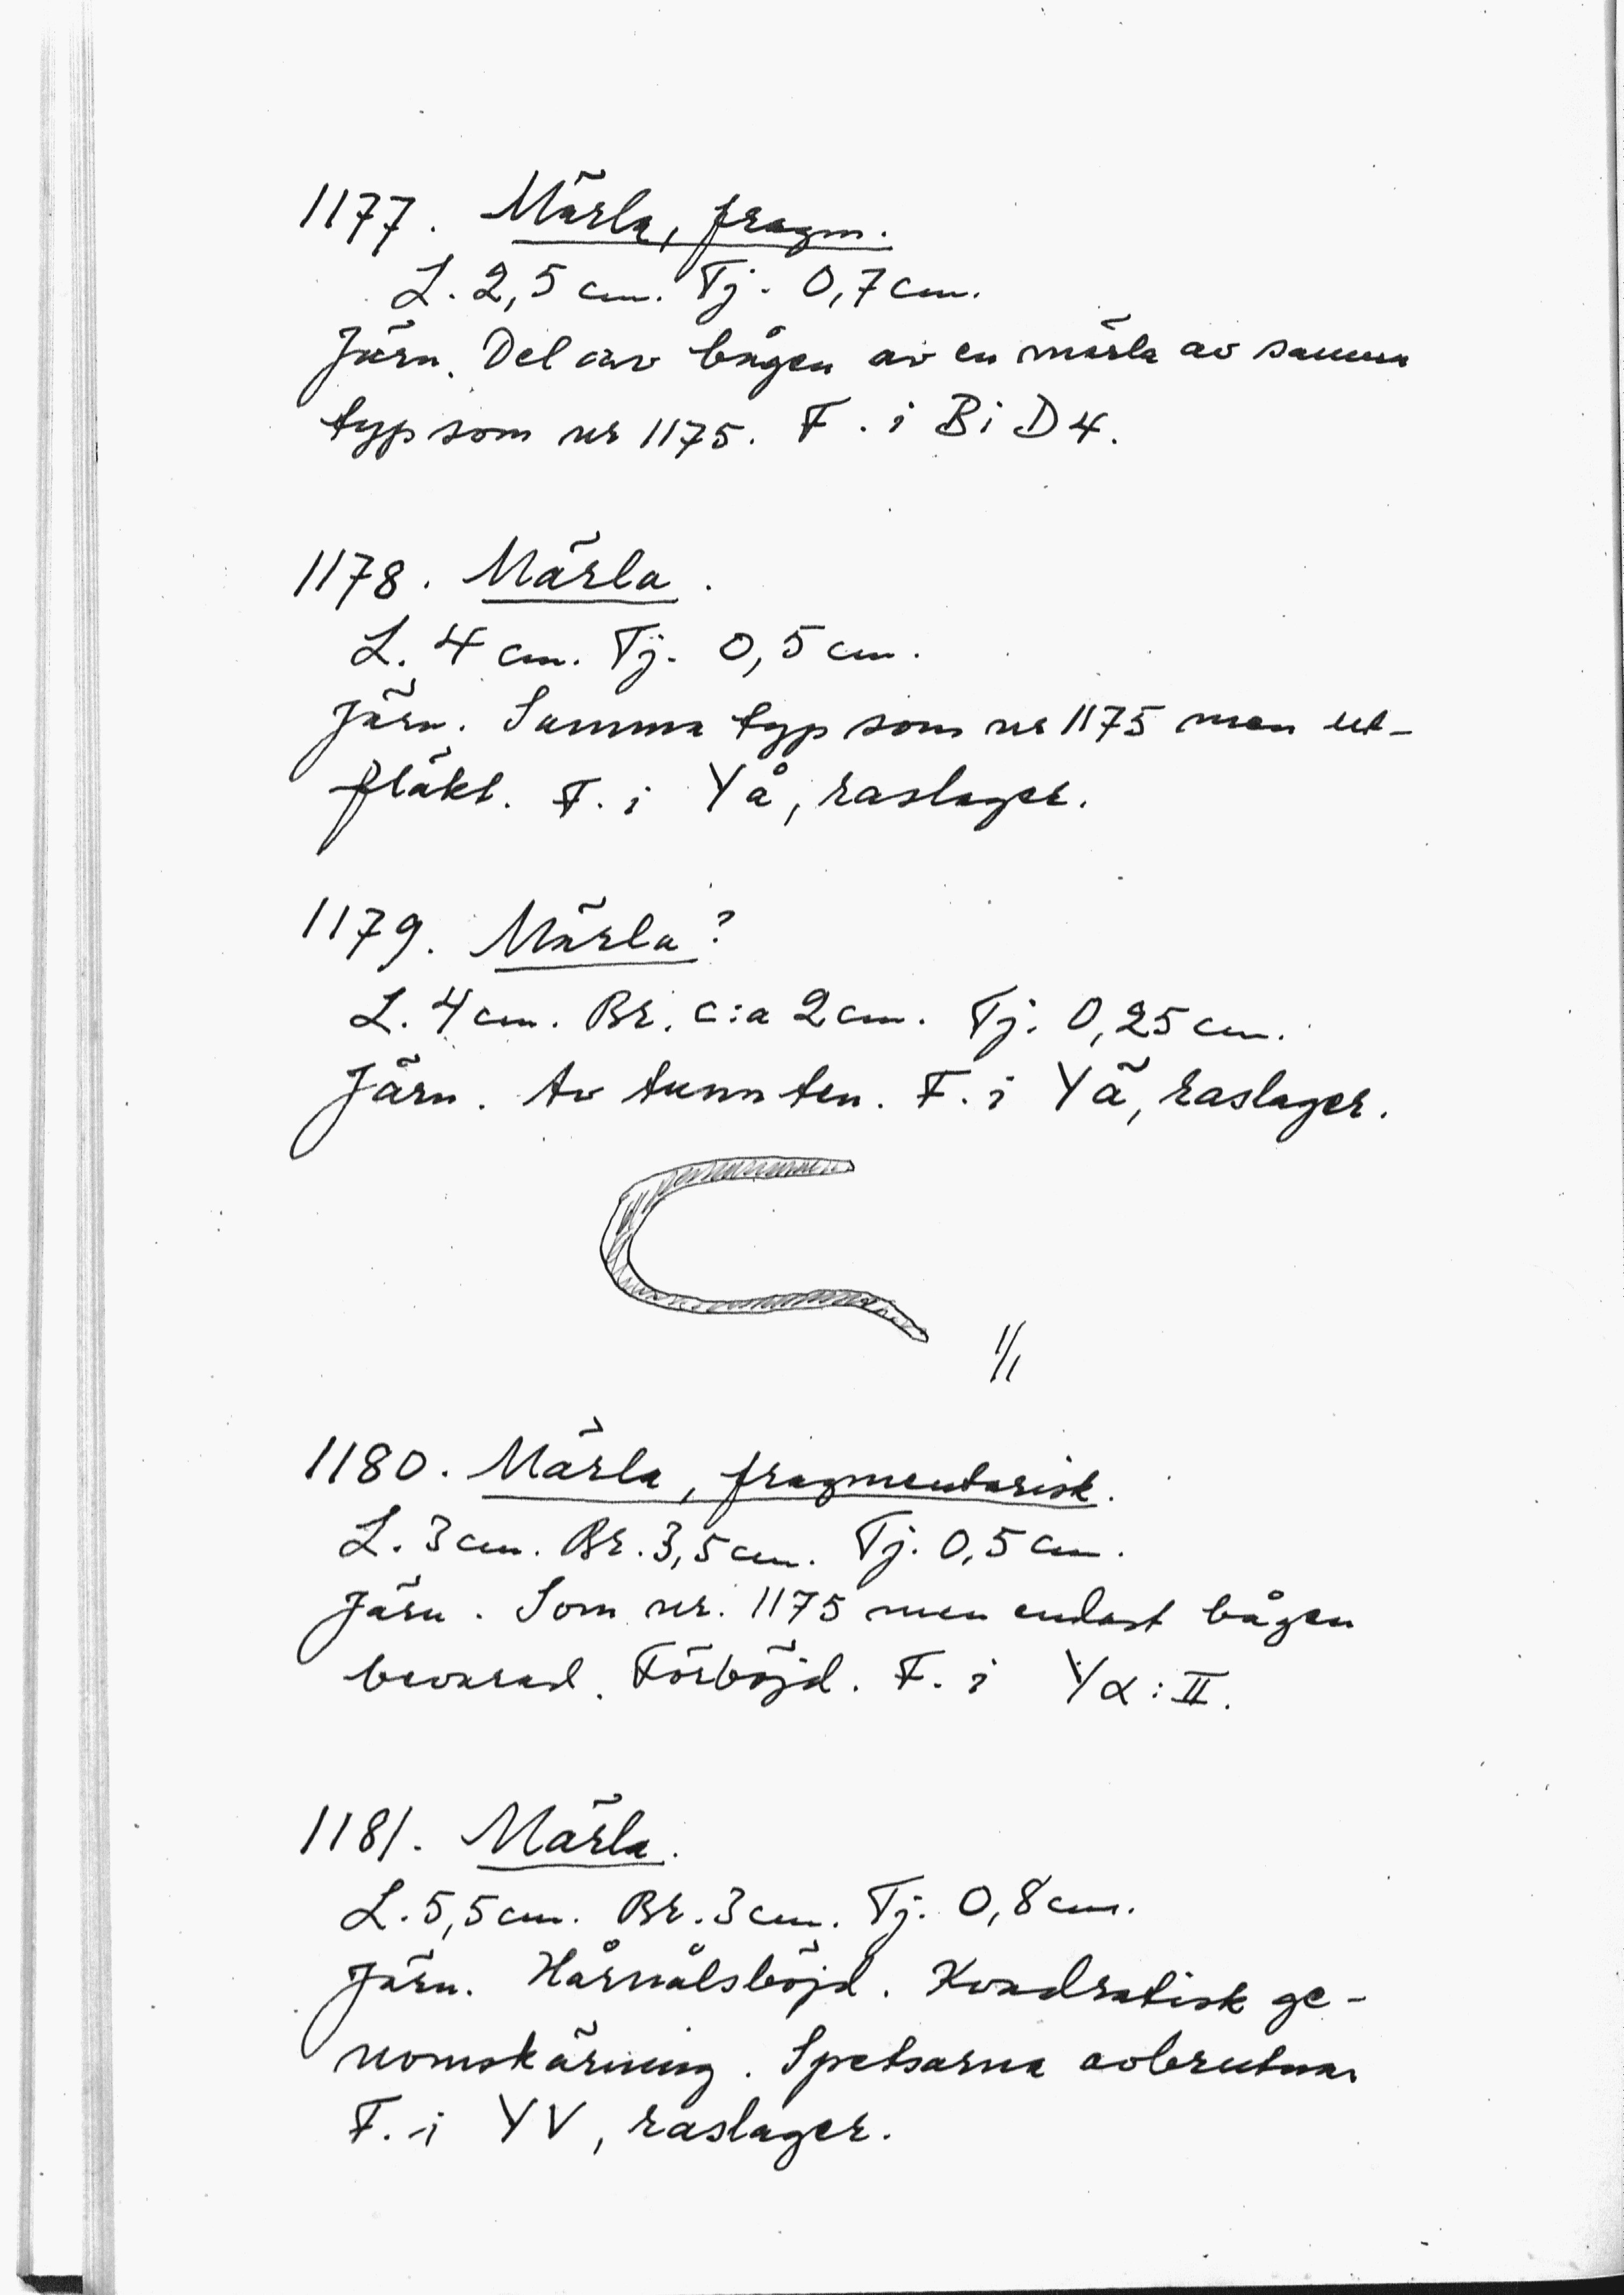 1177. Märla, fragm.
L. 2,5 cm. Tj. 0,7 cm.
Järn. Del av bågen av en märla av samma
typ som nr 1175. F. i Bi D4.
1178. Märla.
L. 4 cm. Tj. 0,5 cm.
Järn. Samma typ som nr 1175 men ut-
fläkt. F. i Yå, raslager.
1179. Märla?
L. 4 cm. Br. c:a 2 cm. Tj. 0,25 cm.
Järn. Av tunn ten. F. i Yä, raslager.
1/1
1180. Märla, fragmentarisk.
L. 3 cm. Br. 3,5 cm. Tj. 0,5 cm.
Järn. Som nr. 1175 men endast bågen
bevarad. Förböjd. F. i Yα:II.
1181. Märla.
L. 5,5 cm. Br. 3 cm. Tj. 0,8 cm.
Järn. Hårnålsböjd. Kvadratisk ge-
nomskärning. Spetsarna avbrutna.
F. i YV, raslager.